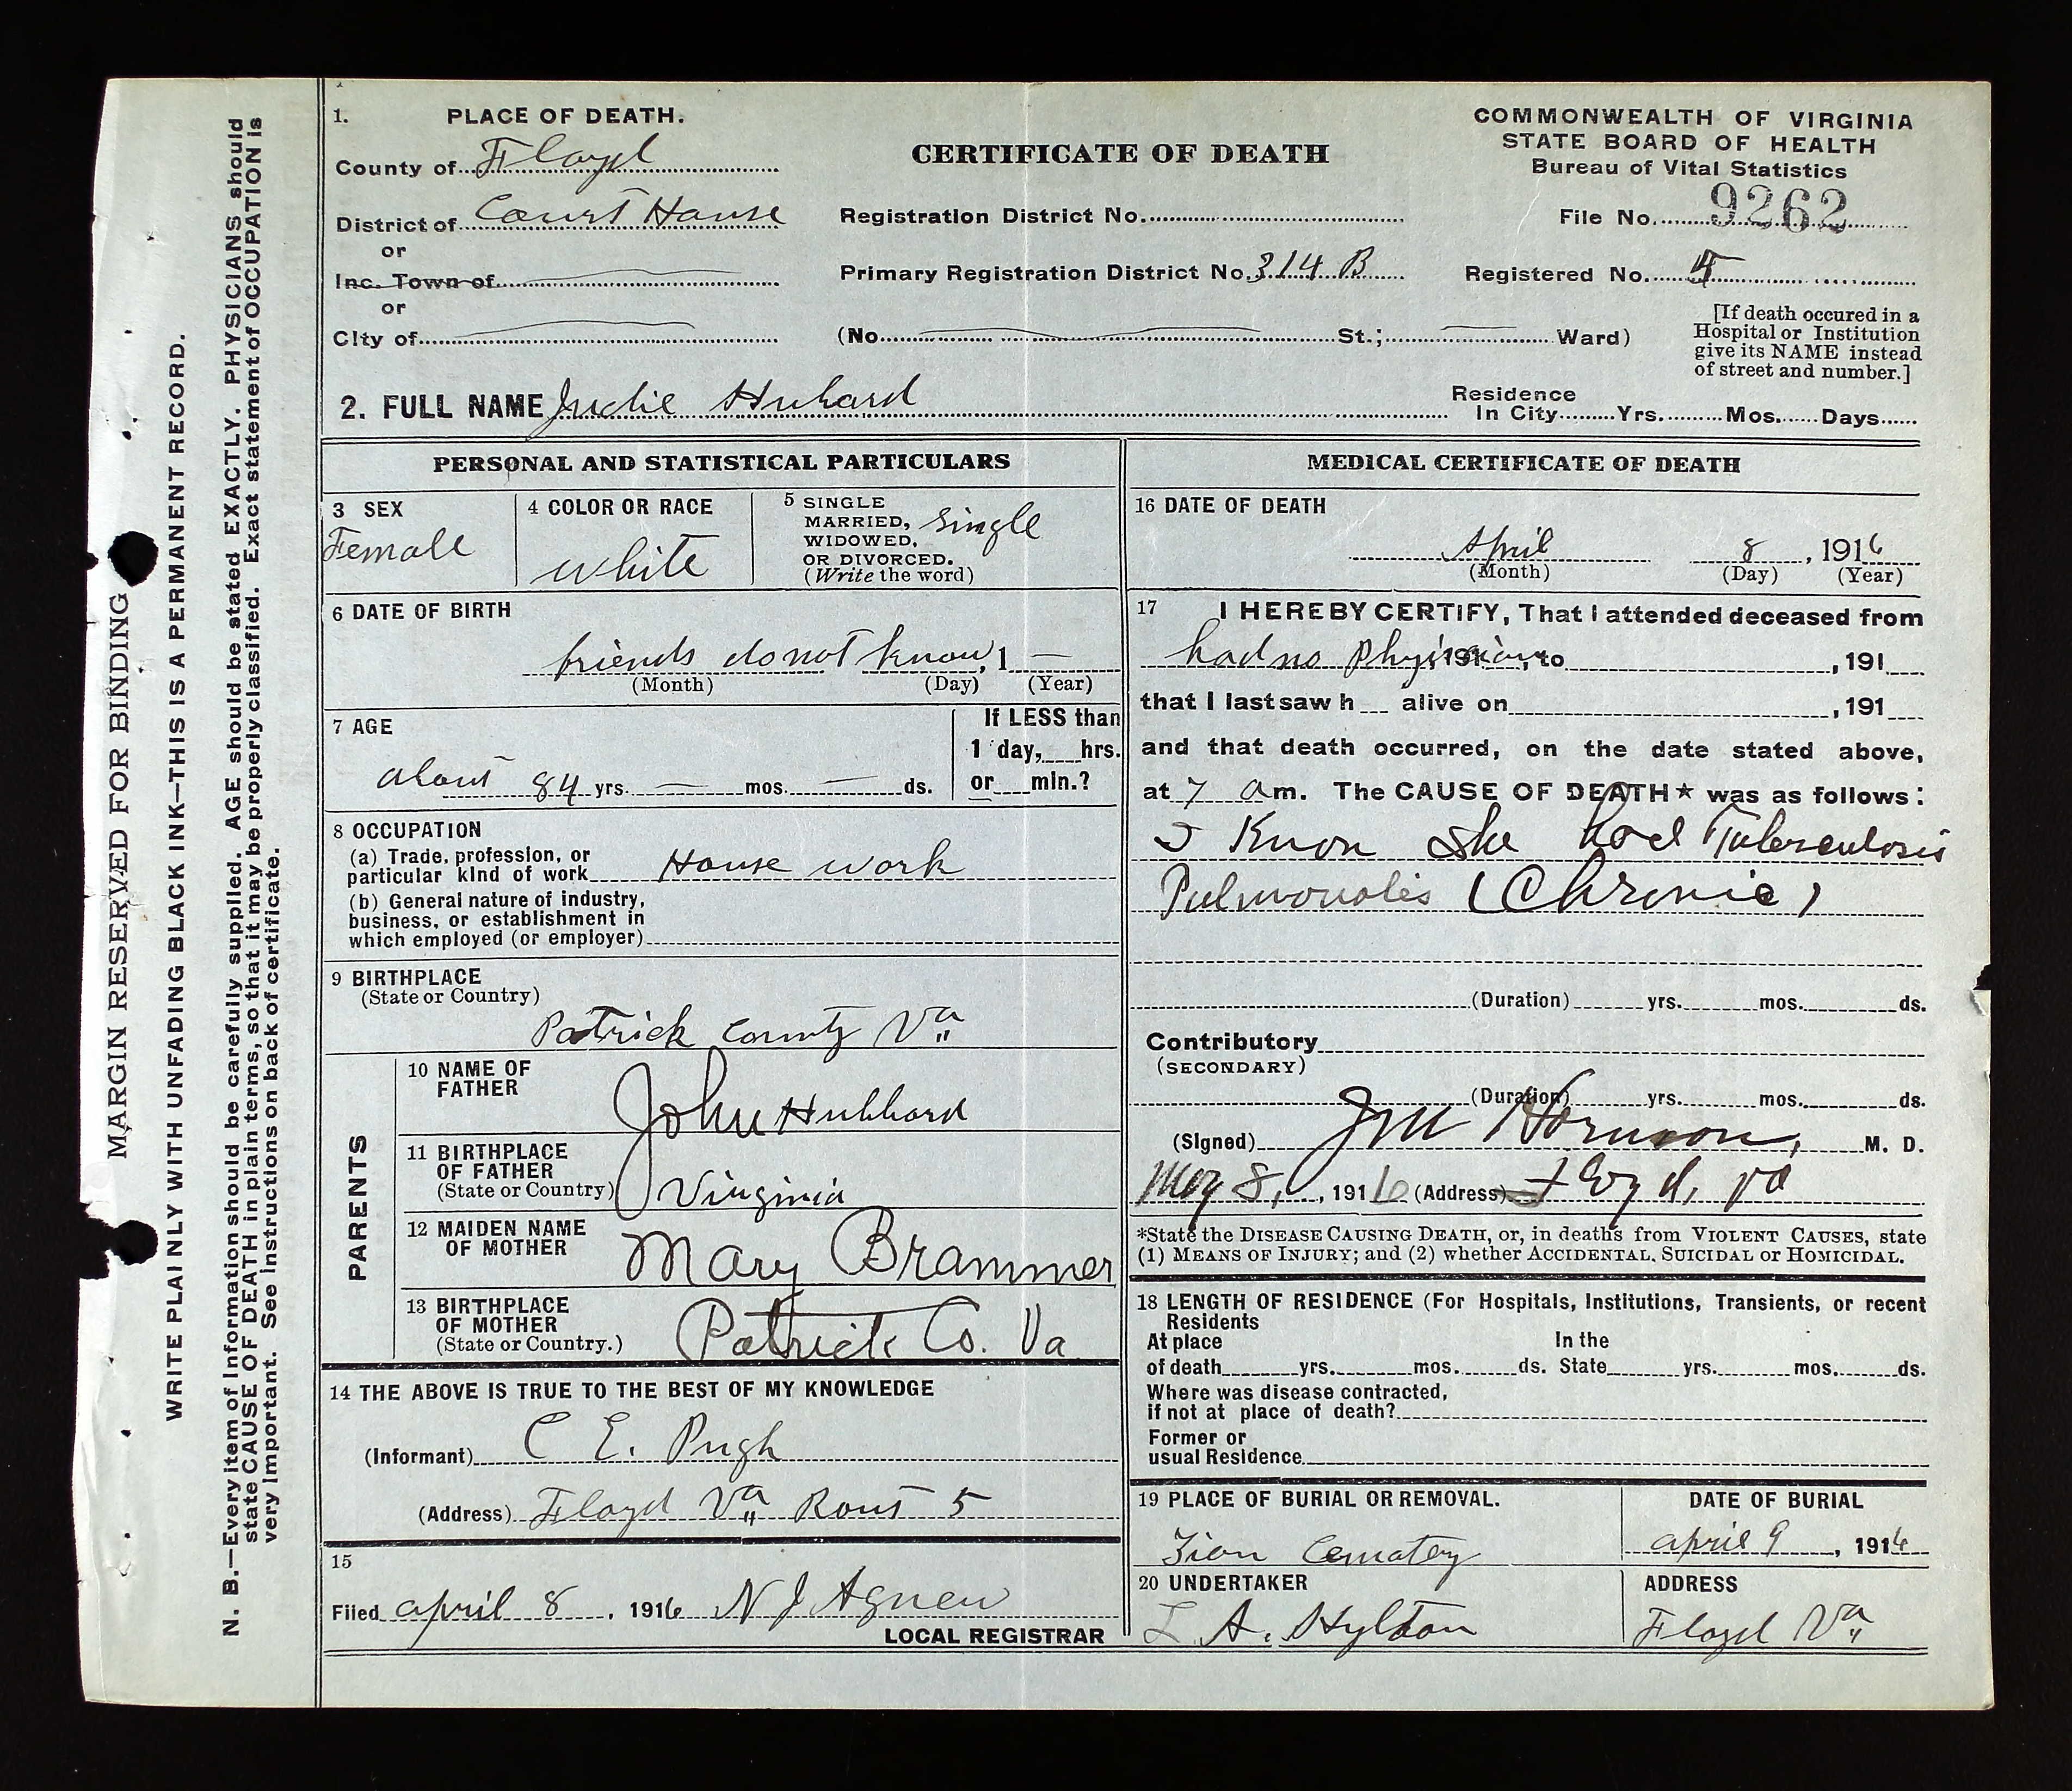 MARGIN RESERVED FOR BINDING
WRITE PLAINLY WITH UNFADING BLACK INK—THIS IS A PERMANENT RECORD.
N. B.—Every item of information should be carefully supplied. AGE should be stated EXACTLY. PHYSICIANS should
state CAUSE OF DEATH in plain terms, so that it may be properly classified. Exact statement of OCCUPATION is
very important. See instructions on back of certificate.
1. PLACE OF DEATH.
County of Floyd
District of Court House
or
Inc. Town of
or
City of
CERTIFICATE OF DEATH
Registration District No.
Primary Registration District No. 314 B
(No. St.; Ward)
COMMONWEALTH OF VIRGINIA
STATE BOARD OF HEALTH
Bureau of Vital Statistics
File No. 9262
Registered No.
[If death occured in a
Hospital or Institution
give its NAME instead
of street and number.]
2. FULL NAME Judie Hubard
Residence
In City Yrs. Mos. Days
PERSONAL AND STATISTICAL PARTICULARS
3 SEX
Female
4 COLOR OR RACE
white
5 SINGLE
MARRIED,
WIDOWED,
OR DIVORCED.
(Write the word)
single
6 DATE OF BIRTH
friends do not know, 1 —
(Month) (Day) (Year)
7 AGE
about 84 yrs. — mos. — ds.
If LESS than
1 day, hrs.
or min.?
8 OCCUPATION
(a) Trade, profession, or
particular kind of work House work
(b) General nature of industry,
business, or establishment in
which employed (or employer)
9 BIRTHPLACE
(State or Country)
Patrick County Va
PARENTS
10 NAME OF
FATHER
John Hubbard
11 BIRTHPLACE
OF FATHER
(State or Country) Virginia
12 MAIDEN NAME
OF MOTHER
Mary Brammer
13 BIRTHPLACE
OF MOTHER
(State or Country.)
Patrick Co. Va
14 THE ABOVE IS TRUE TO THE BEST OF MY KNOWLEDGE
(Informant) C E. Pugh
(Address) Floyd Va Rout 5
15
Filed april 8, 1916 N J Agnew
LOCAL REGISTRAR
MEDICAL CERTIFICATE OF DEATH
16 DATE OF DEATH
April 8, 1916
(Month) (Day) (Year)
17 I HEREBY CERTIFY, That I attended deceased from
had no physician, 191 , to , 191
that I last saw h alive on , 191
and that death occurred, on the date stated above,
at 7 am. The CAUSE OF DEATH* was as follows:
I Know she had Tuberculosis
Pulmonalis (Chronic)
(Duration) yrs. mos. ds.
Contributory
(SECONDARY)
(Duration) yrs. mos. ds.
(Signed) M. D.
May 8, 1916 (Address) Floyd, Va
*State the DISEASE CAUSING DEATH, or, in deaths from VIOLENT CAUSES, state
(1) MEANS OF INJURY; and (2) whether ACCIDENTAL, SUICIDAL or HOMICIDAL.
18 LENGTH OF RESIDENCE (For Hospitals, Institutions, Transients, or recent
Residents
At place In the
of death yrs. mos. ds. State yrs. mos. ds.
Where was disease contracted,
if not at place of death?
Former or
usual Residence
19 PLACE OF BURIAL OR REMOVAL.
Zion Cematery
DATE OF BURIAL
april 9, 1916
20 UNDERTAKER
L A. Hylton
ADDRESS
Floyd Va